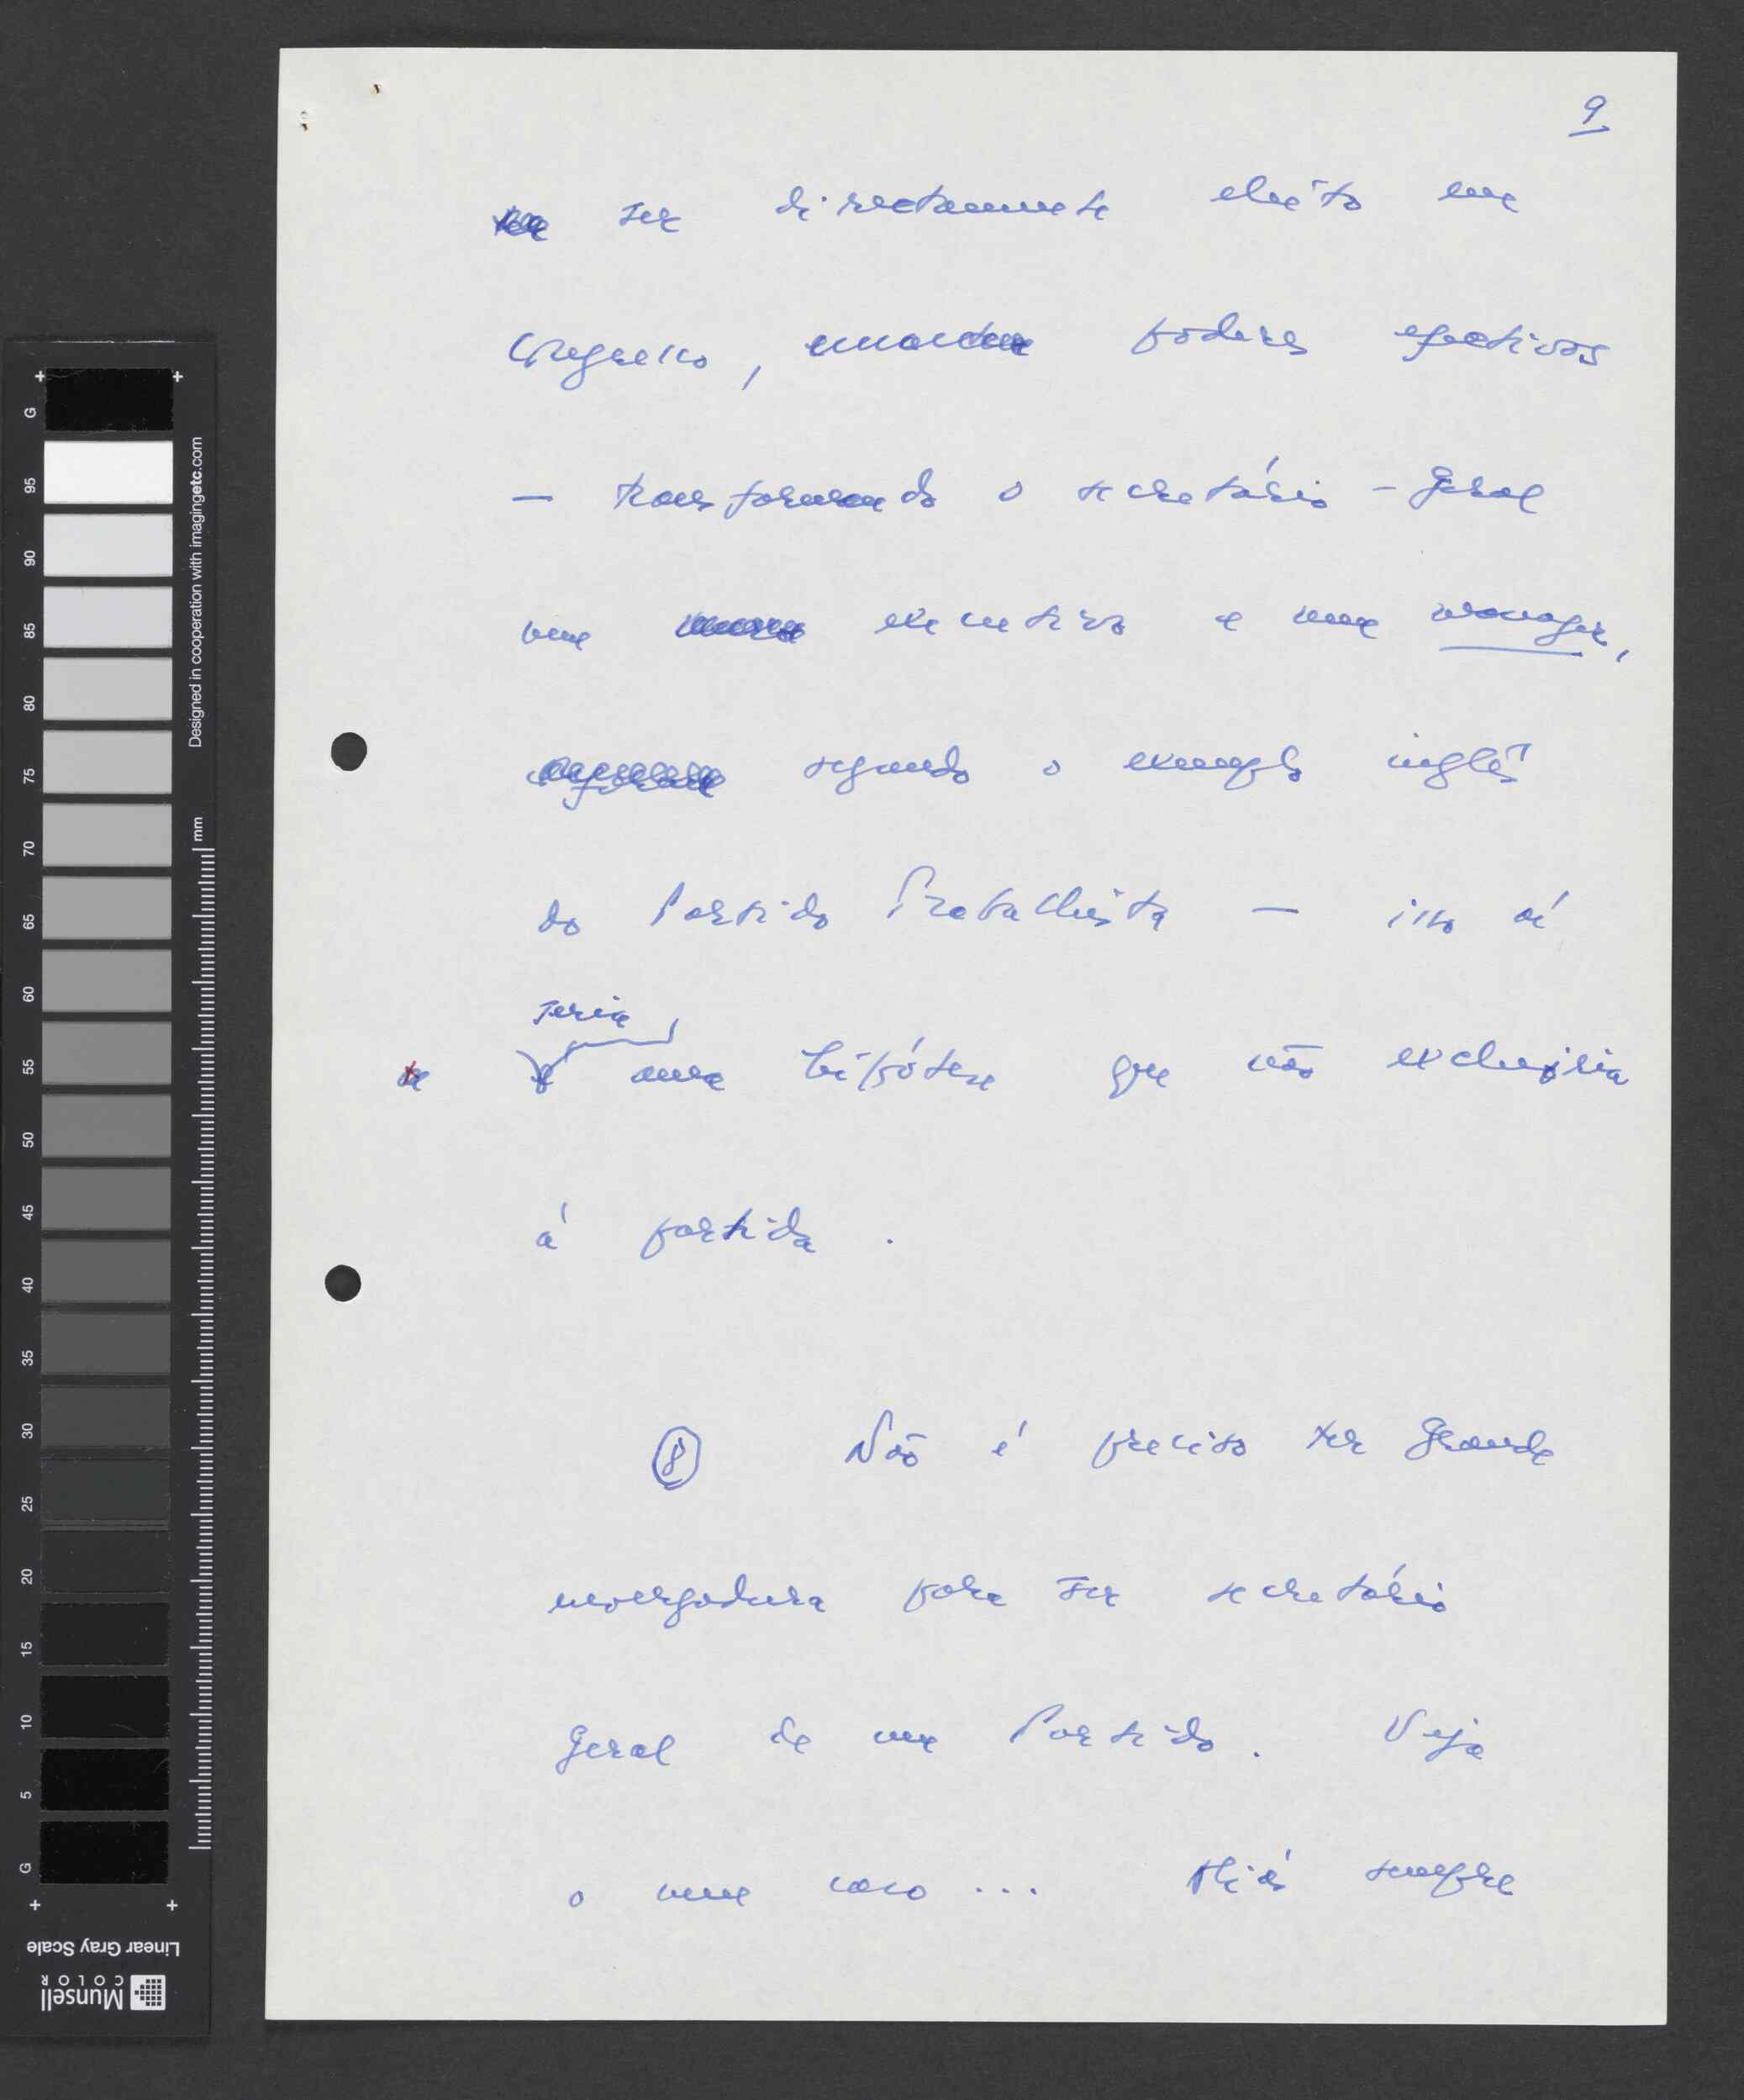 9
ser directamente eleito em
Congresso, poderes efectivos
— transformando o secretário-geral
num executivo e num manager,
segundo o exemplo inglês
do Partido Trabalhista — isso aí
seria
uma hipótese que não excluiria
à partida.
8 Não é preciso ter grande
envergadura para ser secretário
geral de um Partido. Veja
o meu caso... Aliás sempre
G
95
90
85
80
75
70
65
60
55
50
45
40
35
30
25
20
15
10
5
G
Designed in cooperation with imagingetc.com
mm
Linear Gray Scale
Munsell
COLOR